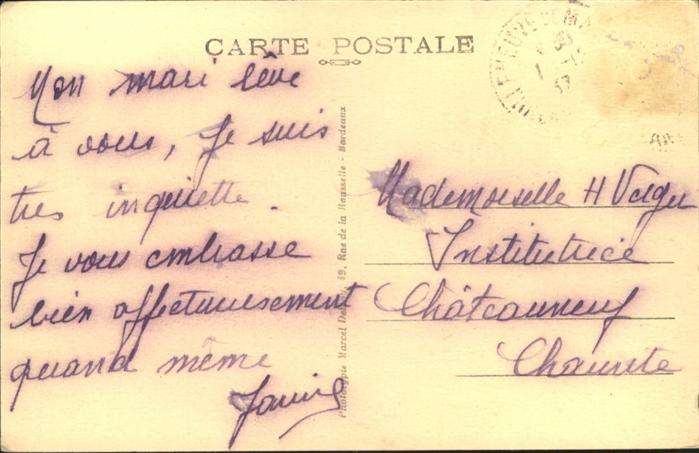 CARTE POSTALE
Mon mari rêve
à vous, je suis
très inquiette.
Je vous embrasse
bien affectueusement
quand même
Mademoiselle H
Institutrice
Châteauneuf
Charente
Phototypie Marcel 49, Rue de la Rousselle - Bordeaux